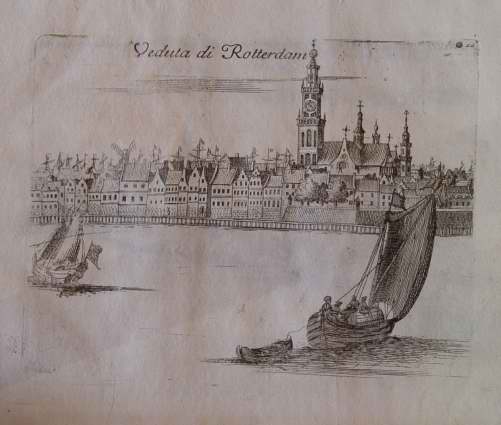 Veduta di Rotterdam